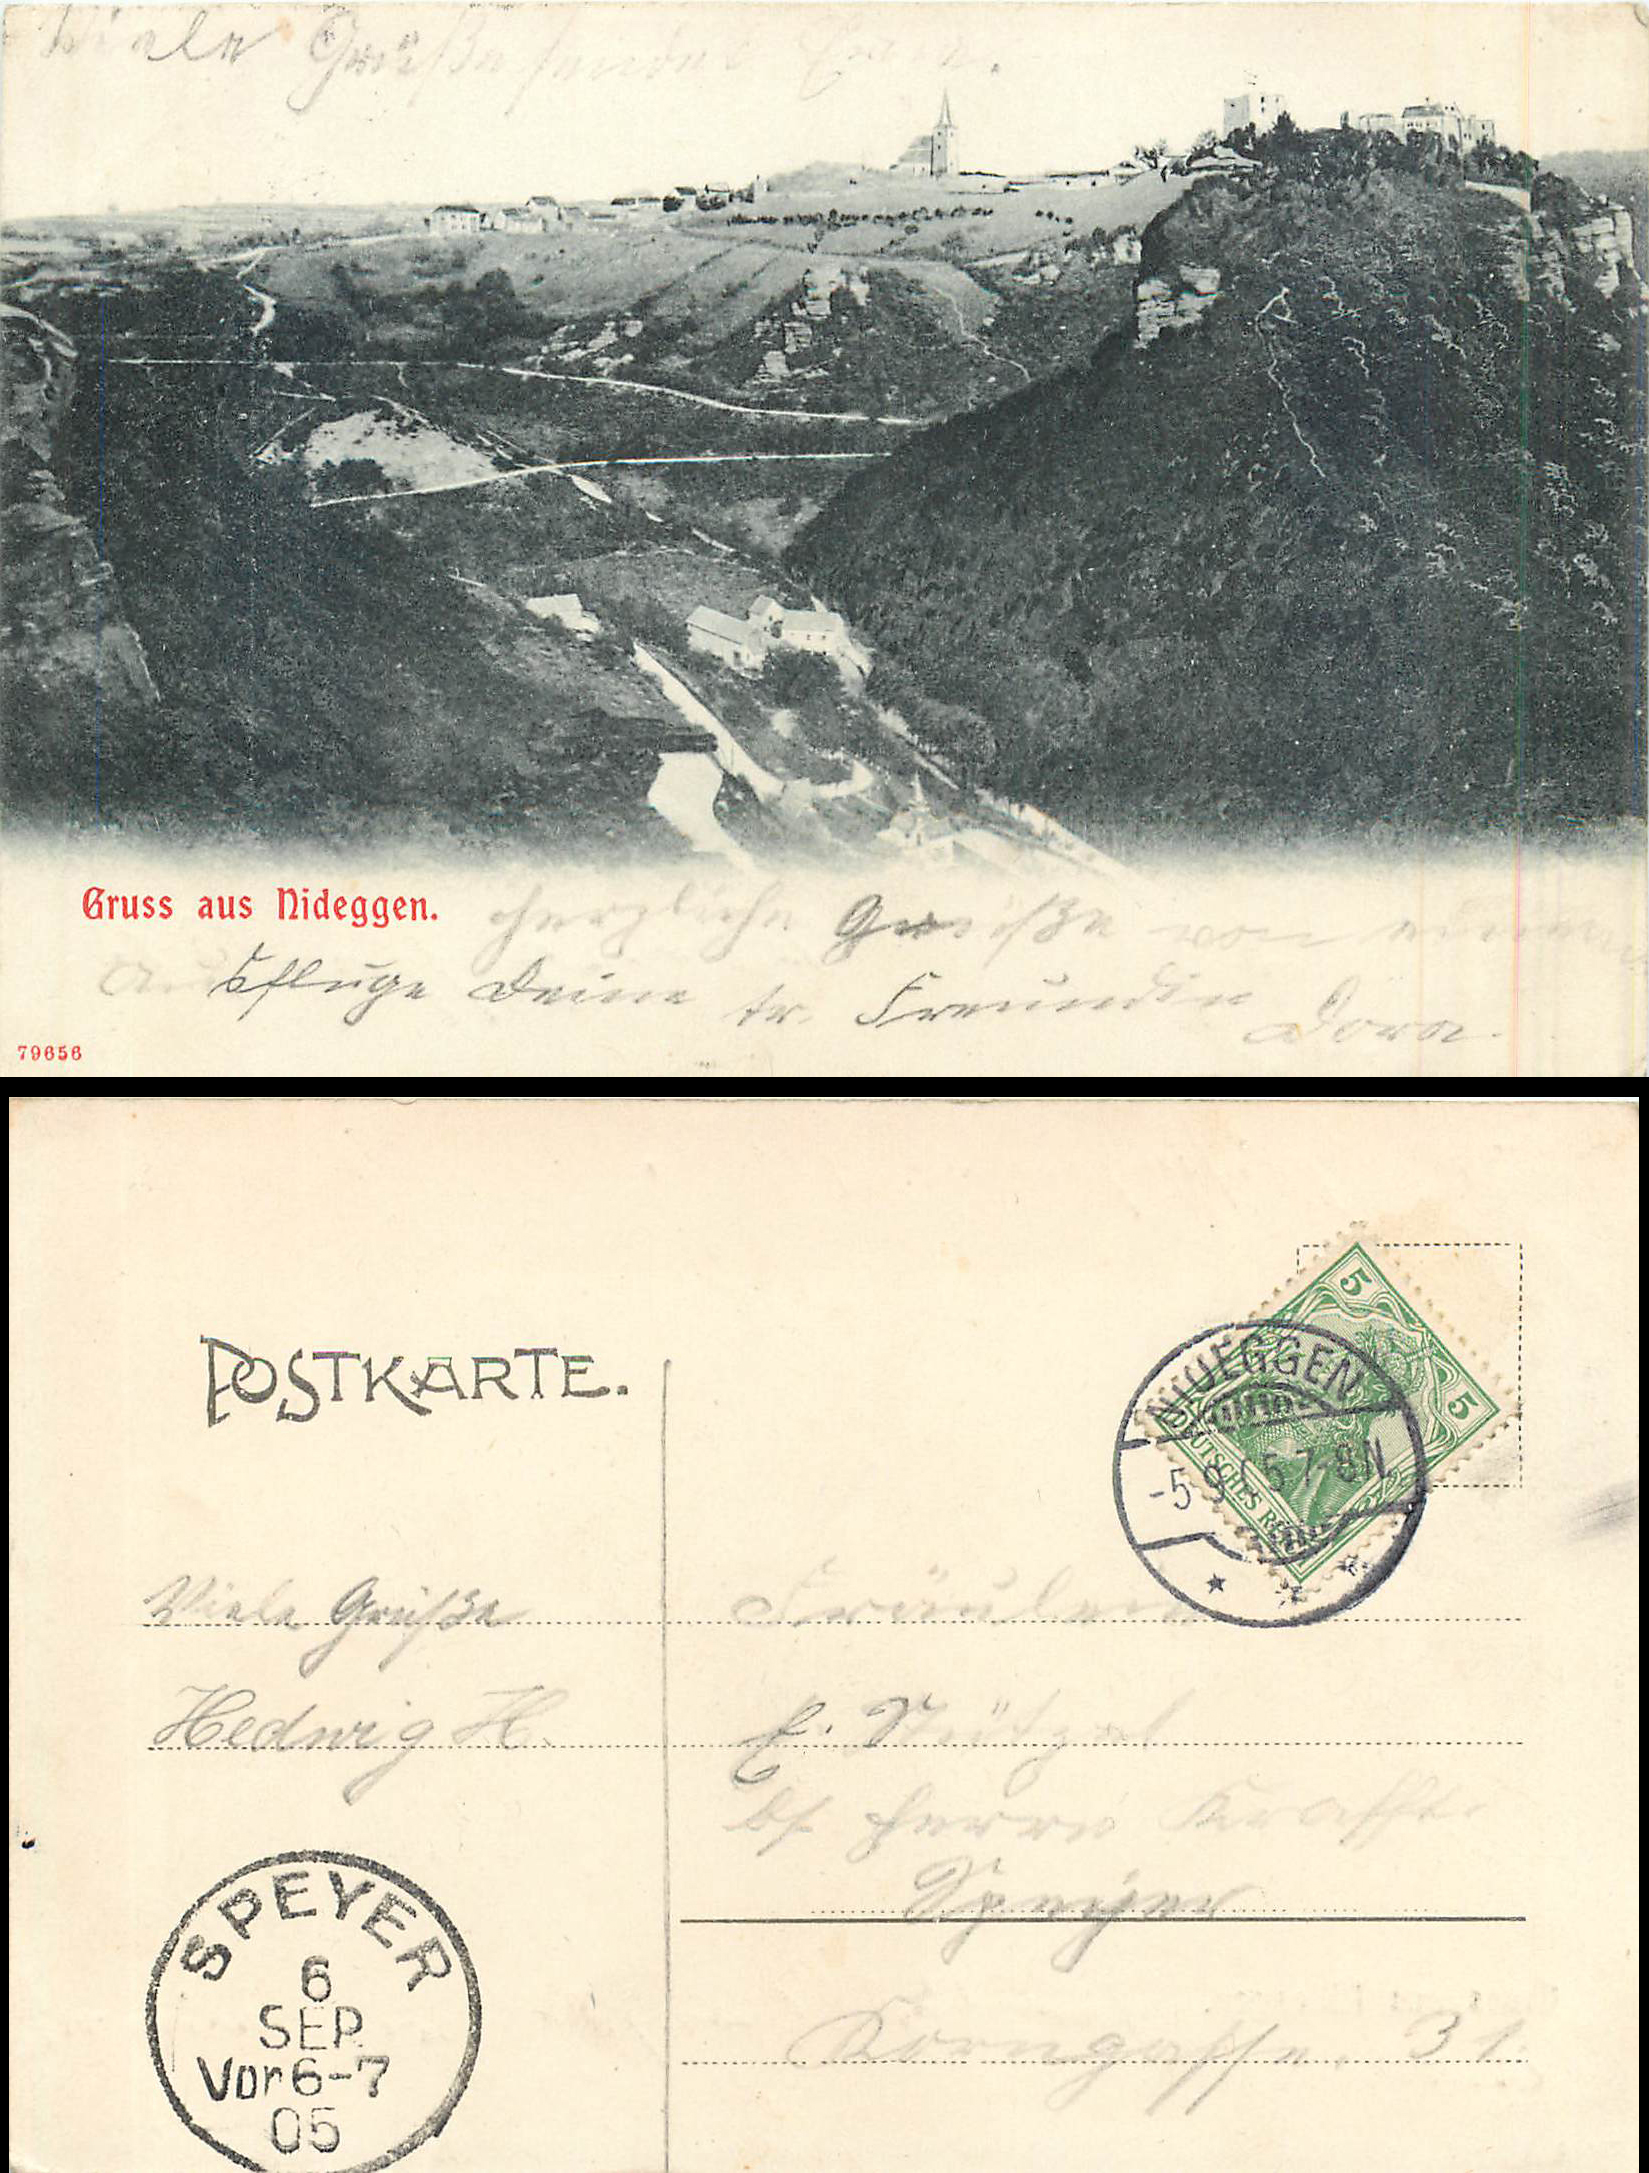 Viele Grüße sendet Erna.
Gruss aus Nideggen.
herzliche Grüße von einem
Ausfluge Deine tr. Freundin
Dora.
79656
POSTKARTE.
5
5
DEUTSCHES REICH
NIDEGGEN
-5 9 05 7-8N
Viele Grüße
Hedwig H.
Fräulein
E.
b/ Herrn Krafft.
Speyer
Korngasse. 31.
SPEYER
6
SEP
Vor 6-7
05